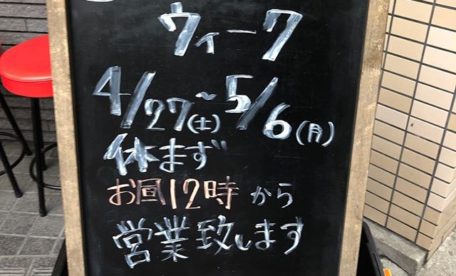 ウィーク
4/27(土)~5/6(月)
休まず
お昼12時から
営業致します